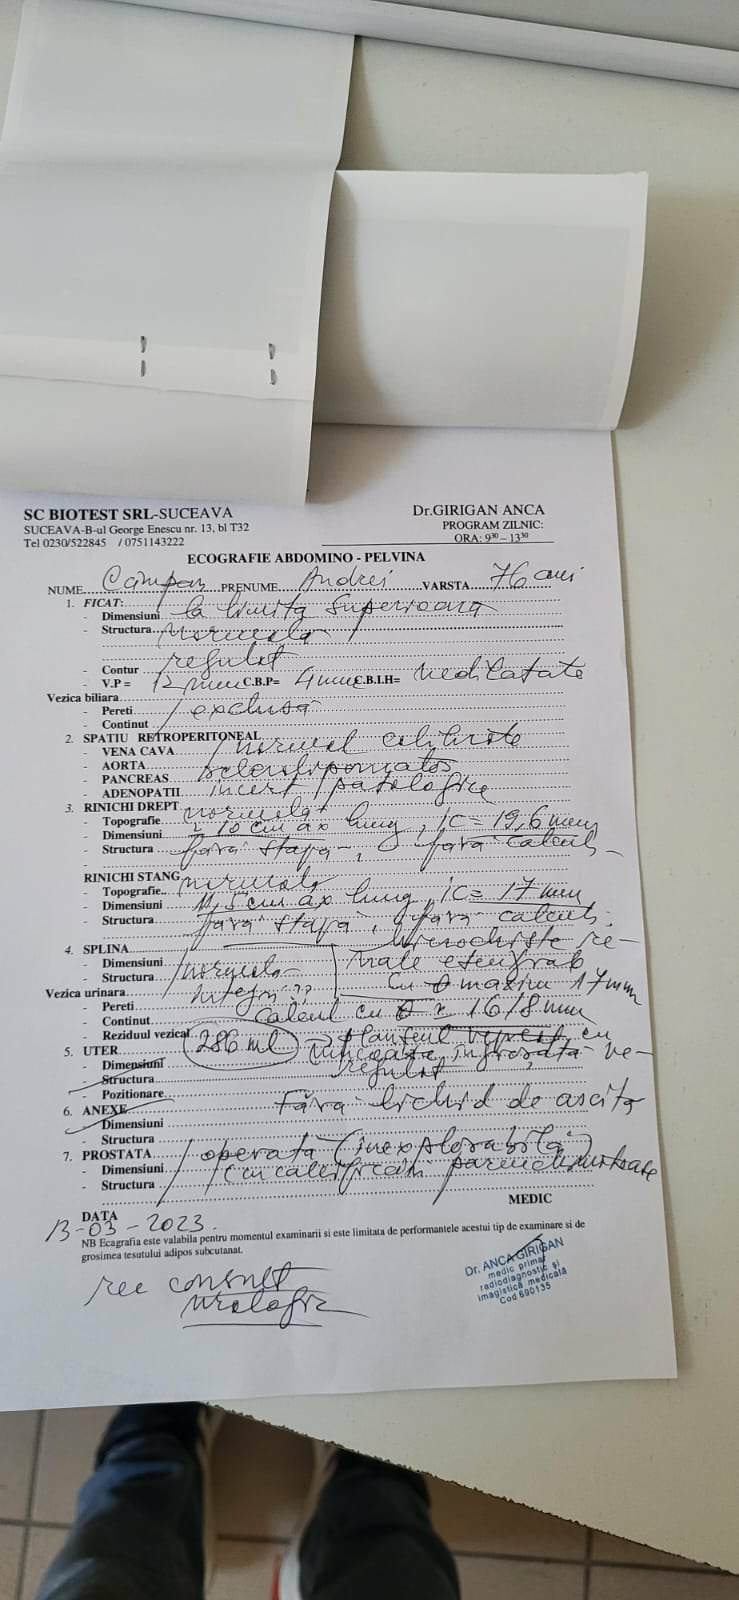 SC BIOTEST SRL-SUCEAVA
SUCEAVA-B-ul George Enescu nr. 13, bl T32
Tel 0230/522845 / 0751143222
Dr.GIRIGAN ANCA
PROGRAM ZILNIC:
ORA: 9³⁰ – 13³⁰
ECOGRAFIE ABDOMINO - PELVINA
NUME Câmpan PRENUME Andrei VARSTA 76 ani
1. FICAT:
- Dimensiuni la limita superioara
- Structura normala
- Contur regulat
- V.P = 12 mm C.B.P= 4 mm C.B.I.H= nedilatate
Vezica biliara
- Pereti exclusă
- Continut
2. SPATIU RETROPERITONEAL
- VENA CAVA normal calibrate
- AORTA
- PANCREAS sclerolipomatos
- ADENOPATII incert patologice
3. RINICHI DREPT
- Topografie normala
- Dimensiuni ≈ 10 cm ax lung, ic = 19,6 mm
- Structura fără stază, fără calculi
RINICHI STANG
- Topografie normala
- Dimensiuni 11,5 cm ax lung, ic = 17 mm
- Structura fără stază, fără calculi.
4. SPLINA Microchiste re-
- Dimensiuni normala nale
- Structura cu Ø maxim 17 mm
Vezica urinara
- Pereti
- Continut Calcul cu Ø ≈ 16/8 mm
- Reziduul vezical 286 ml cu
5. UTER îngroșată ne-
- Dimensiuni regulat
- Structura
- Pozitionare
6. ANEXE Fără lichid de ascită
- Dimensiuni
- Structura
7. PROSTATA operată (inexplorabilă)
- Dimensiuni cu calcificări
- Structura
MEDIC
DATA
13-03-2023.
NB Ecagrafia este valabila pentru momentul examinarii si este limitata de performantele acestui tip de examinare si de
grosimea tesutului adipos subcutanat.
rec consult
urologic
Dr. ANCA GIRIGAN
medic primar
radiodiagnostic și
imagistică medicala
Cod 690135